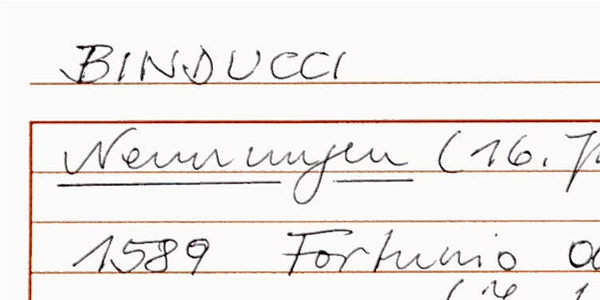 BINDUCCI
Nennungen (16.
1589 Fortunio